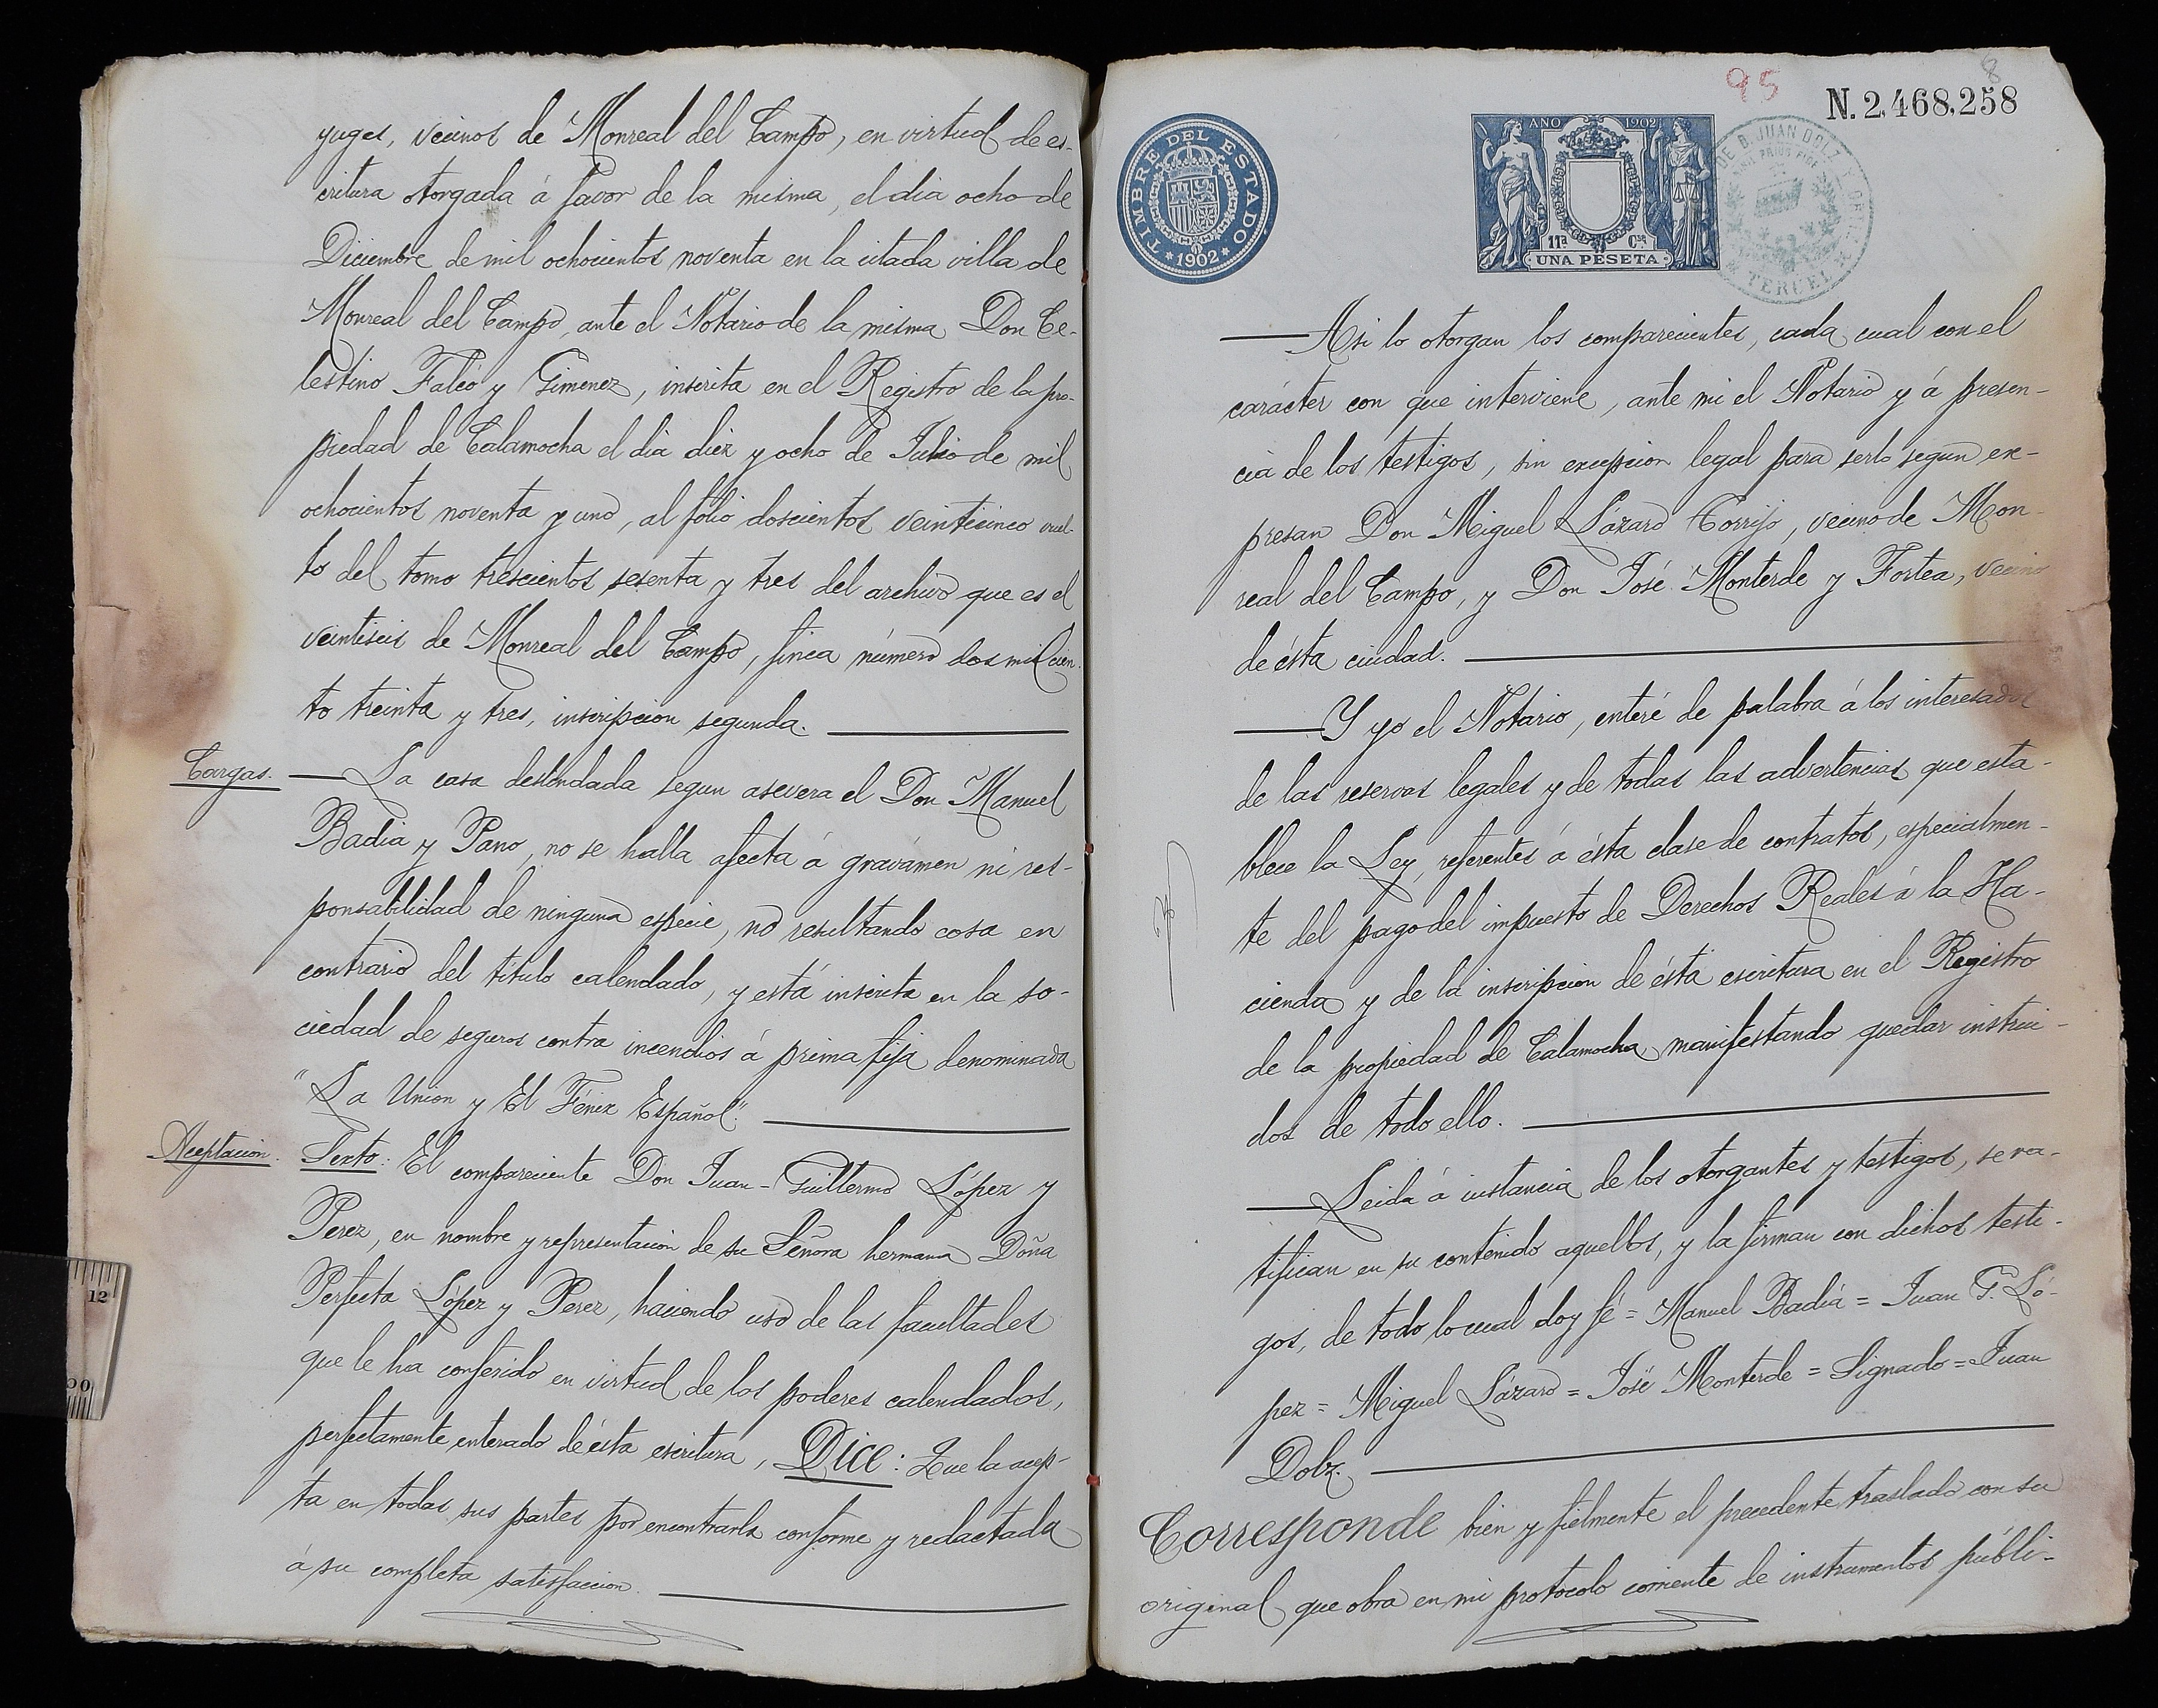 yuges, vecinos de Monreal del Campo, en virtud de es-
critura otorgada á favor de la misma, el dia ocho de
Diciembre de mil ochocientos noventa en la citada villa de
Monreal del Campo, ante el Notario de la misma Don Ce-
lestino Falcó y Gimenez, inscrita en el Registro de la pro-
piedad de Calamocha el dia diez y ocho de Julio de mil
ochocientos noventa y uno, al fólio doscientos veinticinco vuel-
to del tomo trescientos sesenta y tres del archivo que es el
veintiseis de Monreal del Campo, finca número dos mil cien-
to treinta y tres, inscripcion segunda.
Cargas. La casa deslindada segun asevera el Don Manuel
Badía y Pano, no se halla afecta á gravámen ni res-
ponsabilidad de ninguna especie, no resultando cosa en
contrario del título calendado, y está inscrita en la so-
ciedad de seguros contra incendios á prima fija denominada
"La Union y El Fénix Español."
Aceptacion. Sexto: El compareciente Don Juan-Guillermo López y
Perez, en nombre y representacion de su Señora hermana Doña
Perfecta López y Perez, haciendo uso de las facultades
que le ha conferido en virtud de los poderes calendados,
perfectamente enterado de ésta escritura, Dice: Que la acep-
ta en todas sus partes por encontrarla conforme y redactada
á su completa satisfaccion.
95
8
N. 2,468,258
TIMBRE DEL ESTADO
*1902*
AÑO 1902
11ª Cse
UNA PESETA
DE D. JUAN DOLZ
TERUEL
Asi lo otorgan los comparecientes, cada cual con el
carácter con que interviene, ante mi el Notario y á presen-
cia de los testigos, sin excepcion legal para serlo segun ex-
presan Don Miguel Lázaro Torrijo, vecino de Mon-
real del Campo, y Don José Monterde y Fortea, vecino
de ésta ciudad.
Y yo el Notario, enteré de palabra á los interesados
de las reservas legales y de todas las advertencias que esta-
blece la Ley, referentes á ésta clase de contratos, especialmen-
te del pago del impuesto de Derechos Reales á la Ha-
cienda y de la inscripcion de ésta escritura en el Registro
de la propiedad de Calamocha manifestando quedar instrui-
dos de todo ello.
Leida á instancia de los otorgantes y testigos, se ra-
tifican en su contenido aquellos, y la firman con dichos testi-
gos, de todo lo cual doy fé = Manuel Badía = Juan G. Ló-
pez = Miguel Lázaro = José Monterde = Signado = Juan
Dolz.
Corresponde bien y fielmente el precedente traslado con su
original que obra en mi protocolo corriente de instrumentos públi-
12